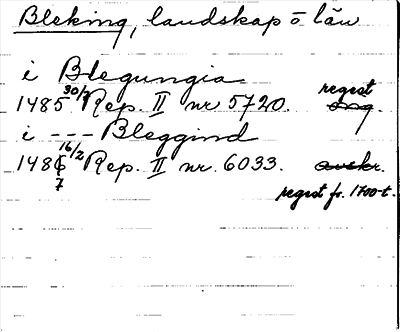 Bleking, landskap o län
i Blegungia
1485 30/7 Rep. II nr 5720. regest orig.
i --- Bleggind
1486 16/2 Rep. II nr. 6033. avskr.
7
regest fr. 1700-t.